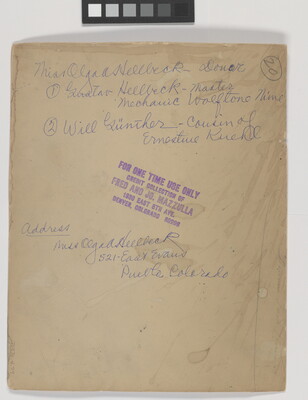 Miss Olga d Hellbeck - Donor
20
① Gustav Hellbeck - master
Mechanic Wolftone Mine
② Will Günther - Cousin of
Ernestine
FOR ONE TIME USE ONLY
CREDIT COLLECTION OF
FRED AND JO MAZZULLA
1930 EAST 8TH AVE.
DENVER, COLORADO 80206
Address
Miss Olga d Hellbeck
821 - East Evans
Pueblo Colorado